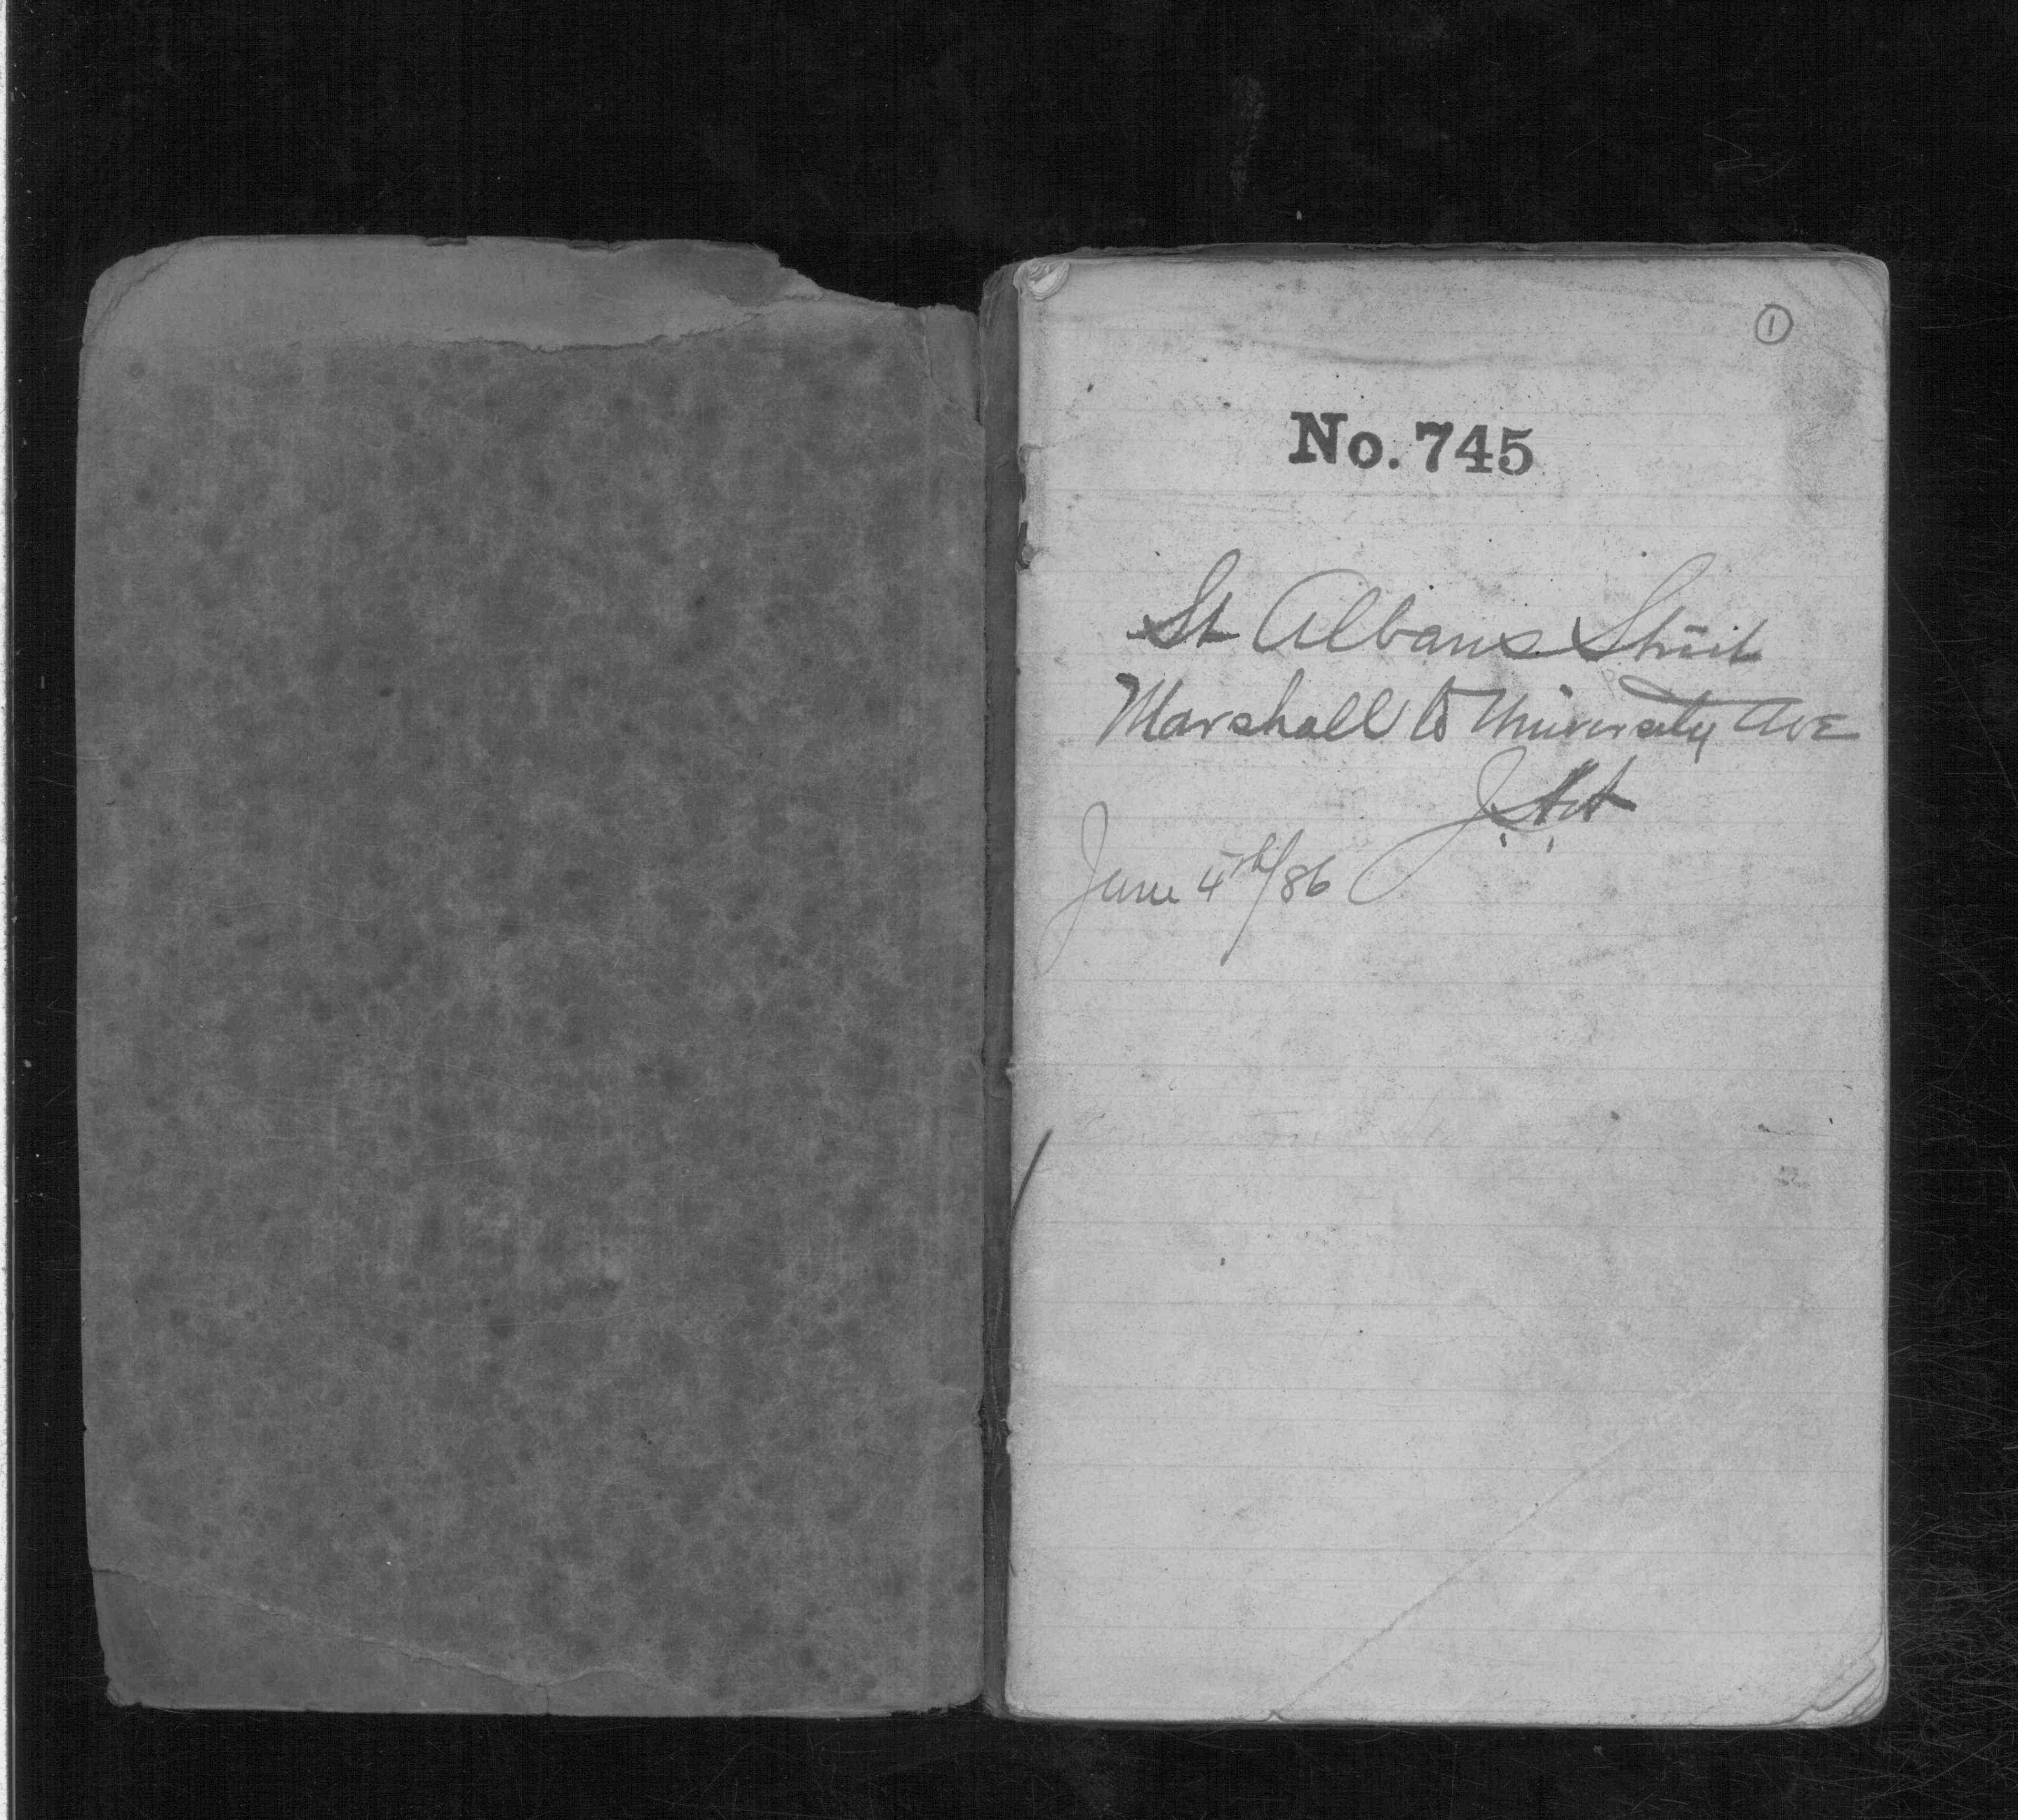 1
No. 745
St Albans Street
Marshall to University Ave
June 4th/86